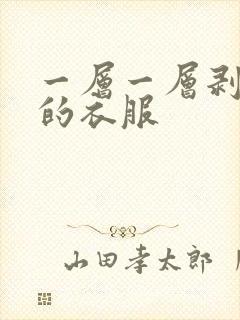 一層一層剥
的衣服
山田孝太郎